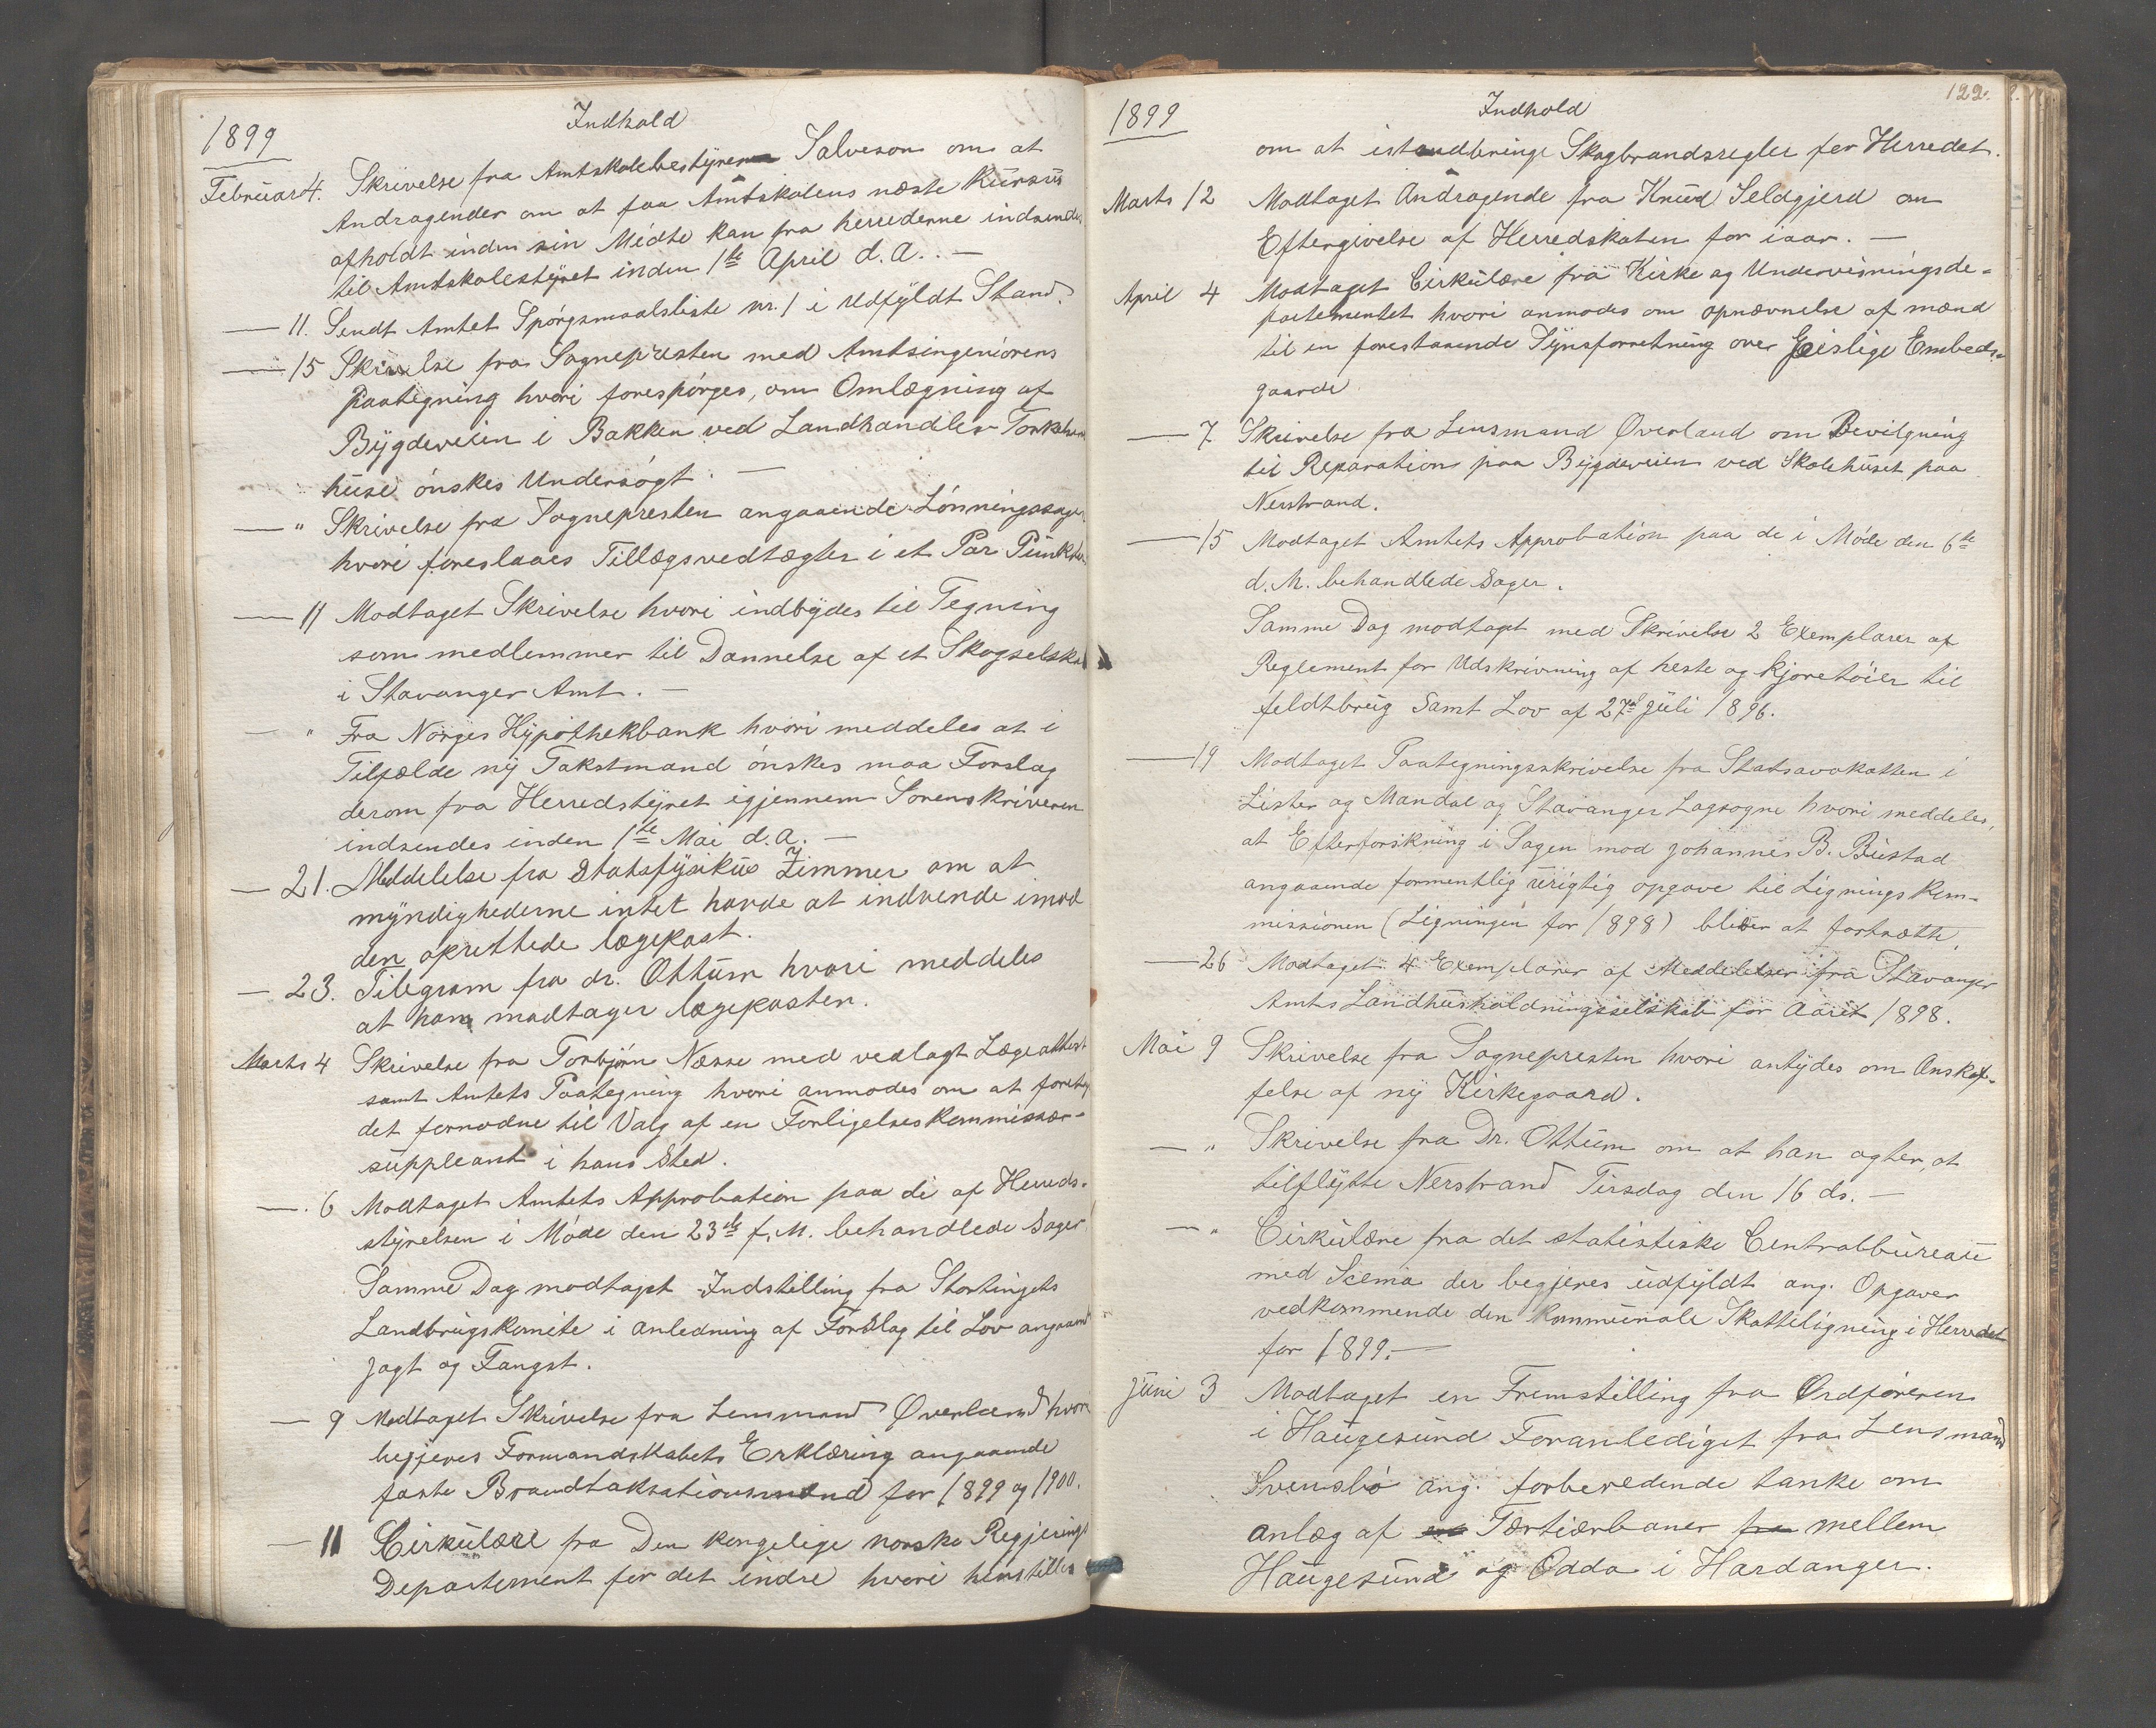 1899
Indhold
Februar 4. Skrivelse fra Amtskolebestyreren Salveson om at
Andragender om at faa Amtskolens næste Kursus
afholdt inden sin Midte kan fra herrederne indsendes
til Amtskolestyret inden 1ste April d. A. . —
— 11. Sendt Amtet Spørgsmaalsliste nr. 1 i Udfyldt Stand.
— 15 Skrivelse fra Sognepresten med Amtsingeniørens
paategning hvori forespørges, om Omlægning af
Bygdeveien i Bakken ved Landhandler
huse ønskes Undersøgt. —
— " Skrivelse fra Sognepresten angaaende Lønningssagen
hvori foreslaaes Tillægsvedtægter i et Par Punkter
— 11 Modtaget Skrivelse hvori indbydes til Tegning
som medlemmer til Dannelse af et Skogselskab
i Stavanger Amt. —
— " Fra Norges Hypothekbank hvori meddeles at i
Tilfælde ny Takstmand ønskes maa Forslag
derom fra Herredstyret igjennem Sorenskriveren
indsendes inden 1ste Mai d. a. —
— 21. Meddelelse fra Statsfysikus Zimmer om at
myndighederne intet havde at indvende imod
den oprettede lægepost.
— 23. Telegram fra dr. Ottum hvori meddeles
at han modtager lægeposten.
Marts 4 Skrivelse fra Torbjørn Næsse med vedlagt Lægeattest
samt Amtets Paategning hvori anmodes om at foretage
det fornødne til Valg af en Forligelseskommissær-
suppleant i hans Sted.
— 6 Modtaget Amtets Approbation paa de af Herreds-
styrelsen i Møde den 23de f. M. behandlede Sager
Samme Dag modtaget Indstilling fra Stortingets
Landbrugskomite i anledning af Forslag til Lov angaaende
jagt og Fangst.
— 9 Modtaget Skrivelse fra Lensmand Øverland hvori
begjeres Formandskabets Erklæring angaaende
faste Brandtakstationsmænd for 1899 og 1900.
— 11 Cirkulære fra Den kongelige norske Regjerings
Departement for det indre hvori henstilles
122.
1899
Indhold
om at istandbringe Skogbrandsregler for Herredet.
Marts 12 Modtaget Andragende fra Knud Seldgjerd om
Eftergivelse af Herredskaten for iaar. —
April 4 Modtaget Cirkulære fra Kirke og Undervisningsde-
partementet hvori anmodes om opnævnelse af mænd
til en forestaaende Synsforretning over Geislige Embeds-
gaarde
— 7 Skrivelse fra Lensmand Øverland om Bevilgning
til Reparation paa Bygdeveien ved Skolehuset paa
Nerstrand.
— 15 Modtaget Amtets Approbation paa de i Møde den 6te
d. M. behandlede Sager.
Samme Dag modtaget med Skrivelse 2 Exemplarer af
Reglement for Udskrivning af heste og kjøretøier til
feldtbrug samt Lov af 27de Juli 1896.
— 19 Modtaget Paategningsskrivelse fra Statsavokatten i
Lister og Mandal og Stavanger Lagsogne hvori meddeles,
at Efterforskning i Sagen mod Johannes B. Bustad
angaaende formentlig urigtig opgave til Lignings Kom-
missionen (Ligningen for 1898) bliver at fortsætte.
— 26 Modtaget 4 Exemplarer af Meddelelser fra Stavanger
Amts Landhusholdningsselskab for Aaret 1898.
Mai 9 Skrivelse fra Sognepresten hvori antydes om Anskaf-
felse af ny Kirkegaard.
— " Skrivelse fra Dr. Ottum om at han agter, at
tilflytte Nerstrand Tirsdag den 16 ds. —
— " Cirkulære fra det statistiske Centralbureau
med Scema der begjeres udfyldt ang. Opgaver
vedkommende den kommunale Skatteligning i Herredet
for 1899. —
Juni 3 Modtaget en Fremstilling fra Ordføreren
i Haugesund Foranlediget fra Lensmand
Svensbø ang. forberedende tanke om
anlæg af Tærtiærbaner fra mellem
Haugesund og Odda i Hardanger.